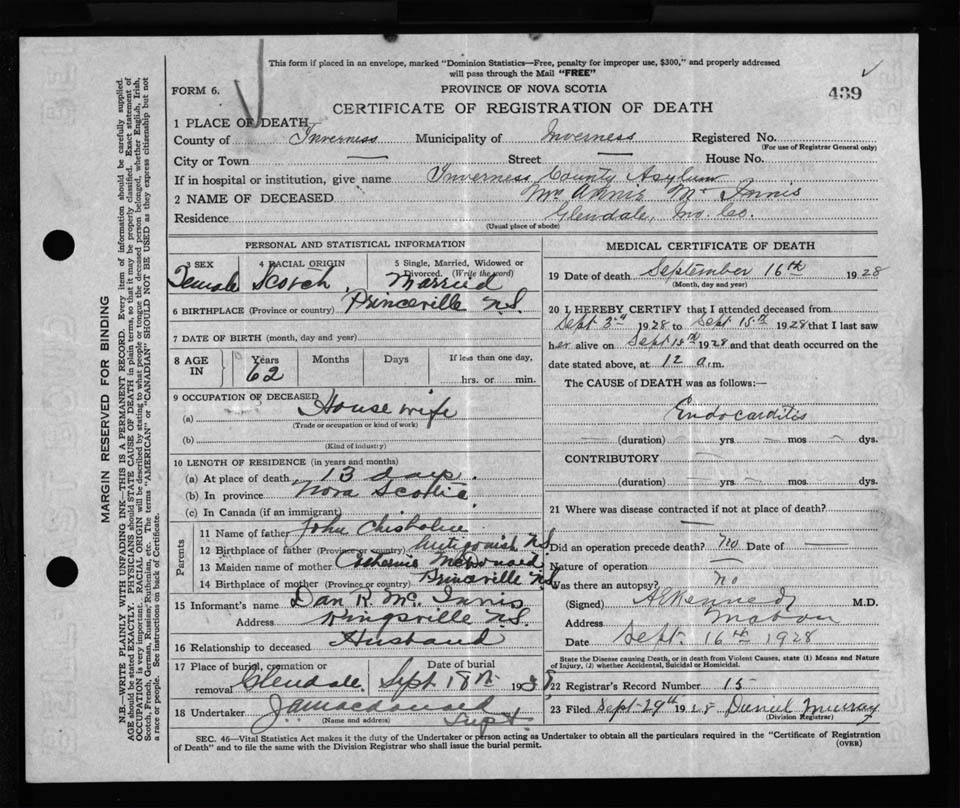 This form if placed in an envelope, marked "Dominion Statistics—Free, penalty for improper use, $300," and properly addressed
will pass through the Mail "FREE"
FORM 6.
PROVINCE OF NOVA SCOTIA
439
CERTIFICATE OF REGISTRATION OF DEATH
1 PLACE OF DEATH
County of Inverness Municipality of Inverness Registered No.
(For use of Registrar General only)
City or Town — Street — House No.
If in hospital or institution, give name Inverness County Asylum
2 NAME OF DECEASED Mrs Annie Mc Innis
Residence Glendale, Inv. Co.
(Usual place of abode)
MARGIN RESERVED FOR BINDING
N.B.—WRITE PLAINLY WITH UNFADING INK—THIS IS A PERMANENT RECORD. Every item of information should be carefully supplied.
AGE should be stated EXACTLY. PHYSICIANS should STATE CAUSE OF DEATH in plain terms, so that it may be properly classified. Exact statement of
OCCUPATION is very important. RACIAL ORIGIN will be described by stating to what people or tongue the deceased person belonged, whether English, Irish,
Scotch, French, German, Russian, Ruthenian, etc. The terms "AMERICAN" or "CANADIAN" SHOULD NOT BE USED as they express citizenship but not
a race or people. See instructions on back of Certificate.
PERSONAL AND STATISTICAL INFORMATION
3 SEX 4 RACIAL ORIGIN 5 Single, Married, Widowed or
Divorced. (Write the word)
Female Scotch Married
6 BIRTHPLACE (Province or country) Princeville N.S.
7 DATE OF BIRTH (month, day and year)
8 AGE IN Years Months Days If less than one day,
62 hrs. or min.
9 OCCUPATION OF DECEASED
(a) House wife
(Trade or occupation or kind of work)
(b)
(Kind of industry)
10 LENGTH OF RESIDENCE (in years and months)
(a) At place of death 13 days
(b) In province Nova Scotia
(c) In Canada (if an immigrant)
Parents
11 Name of father John Chisholm
12 Birthplace of father (Province or country) Antigonish N.S.
13 Maiden name of mother Catherine McDonald
14 Birthplace of mother (Province or country) Princeville N.S.
15 Informant's name Dan R. Mc Innis
Address Kingsville N.S.
16 Relationship to deceased Husband
17 Place of burial, cremation or Date of burial
removal Glendale Sept 18th 1928
18 Undertaker Supt
(Name and address)
MEDICAL CERTIFICATE OF DEATH
19 Date of death September 16th 1928
(Month, day and year)
20 I HEREBY CERTIFY that I attended deceased from
Sept 3rd 1928 to Sept 15th 1928 that I last saw
her alive on Sept 15th 1928 and that death occurred on the
date stated above, at 12 a.m.
The CAUSE of DEATH was as follows:—
Endocarditis
— (duration) — yrs. — mos. — dys.
CONTRIBUTORY
(duration) yrs. mos. dys.
21 Where was disease contracted if not at place of death?
Did an operation precede death? No Date of —
Nature of operation —
Was there an autopsy? No
(Signed) A E Kennedy M.D.
Address Mabou
Date Sept. 16th 1928
State the Disease causing Death, or in death from Violent Causes, state (1) Means and Nature
of Injury, (2) whether Accidental, Suicidal or Homicidal.
22 Registrar's Record Number 15
23 Filed Sept 29th 1928 Daniel Murray
(Division Registrar)
SEC. 46—Vital Statistics Act makes it the duty of the Undertaker or person acting as Undertaker to obtain all the particulars required in the "Certificate of Registration
of Death" and to file the same with the Division Registrar who shall issue the burial permit.
(OVER)